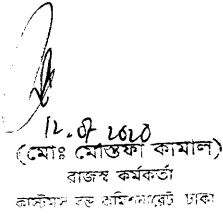 12.07.2020
(মোঃ মোস্তফা কামাল)
রাজস্ব কর্মকর্তা
কাস্টমস বন্ড কমিশনারেট ঢাকা